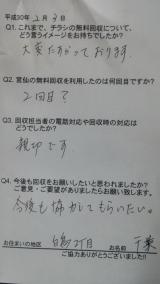 平成30年 2月 3日
Q1. これまで、チラシの無料回収について、
どう言うイメージをお持ちでしたか?
大変たすかって おります。
Q2. 宮仙の無料回収を利用したのは何回目ですか?
2回目?
Q3. 回収担当者の電話対応や回収時の対応は
どうでしたか?
親切です
Q4. 今後も回収をお願いしたいと思われましたか?
ご意見・ご要望がありましたらお願い致します。
今後も 協力してもらいたい。
お住まいの地区 白鳥2丁目 お名前 千葉
ご協力ありがとうございました!!